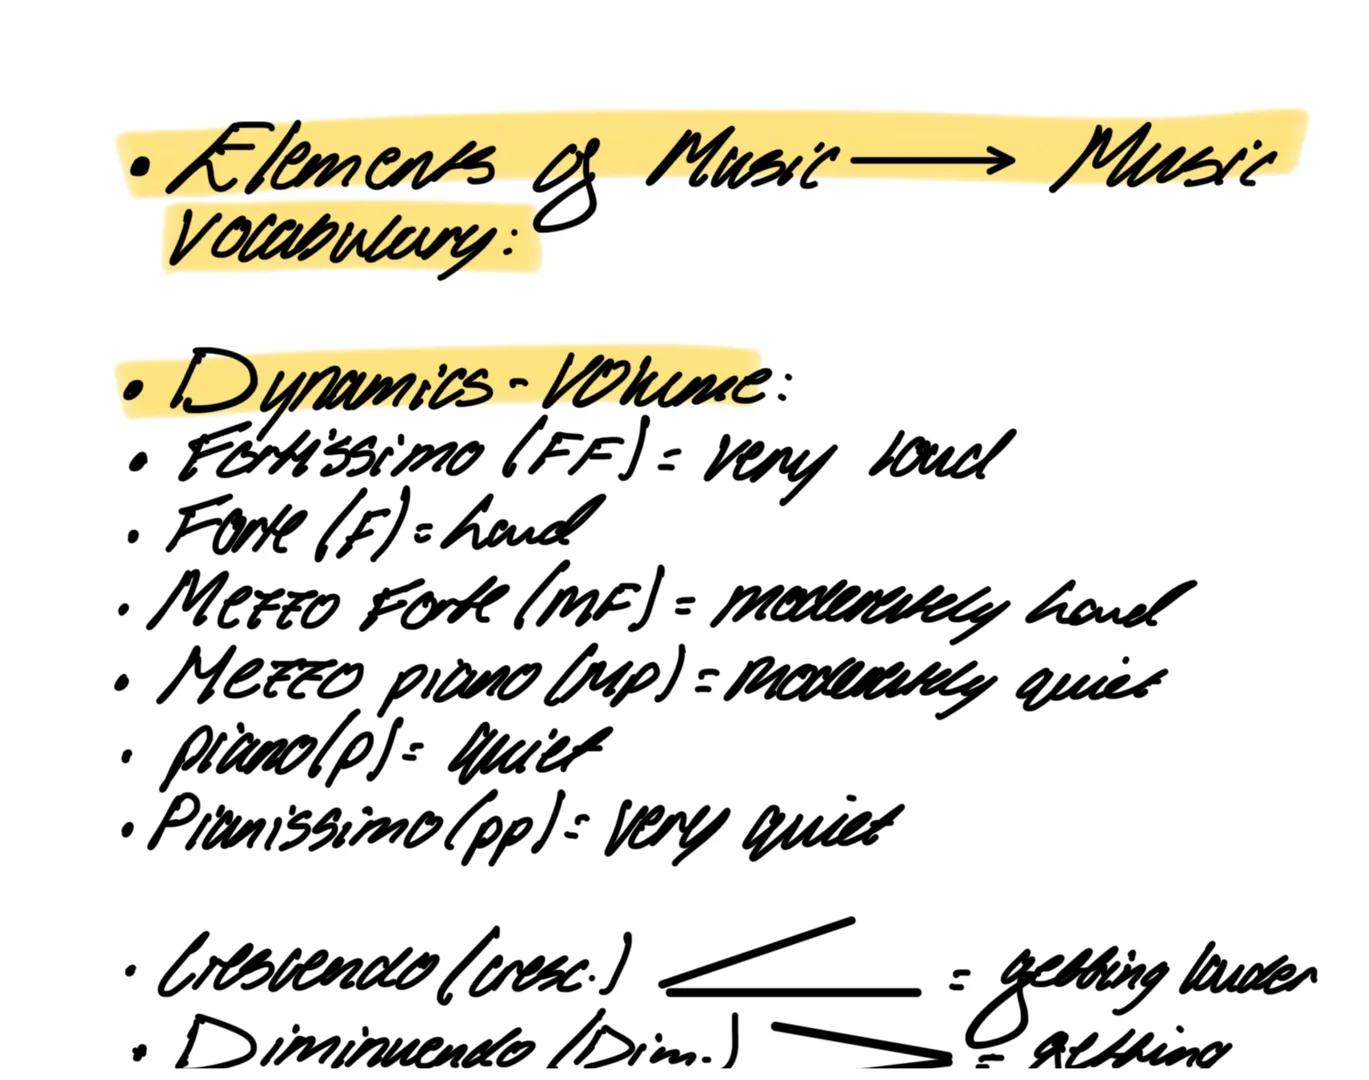 • Elements of Music → Music
Vocabulary:
• Dynamics - Volume:
• Fortissimo (FF) = very loud
• Forte (F) = loud
• Mezzo Forte (mF) = moderately loud
• Mezzo piano (Mp) = moderately quiet
• piano(p) = quiet
• Pianissimo (pp) = very quiet
• Crescendo (cresc.) < = getting louder
• Diminuendo (Dim.) > = getting